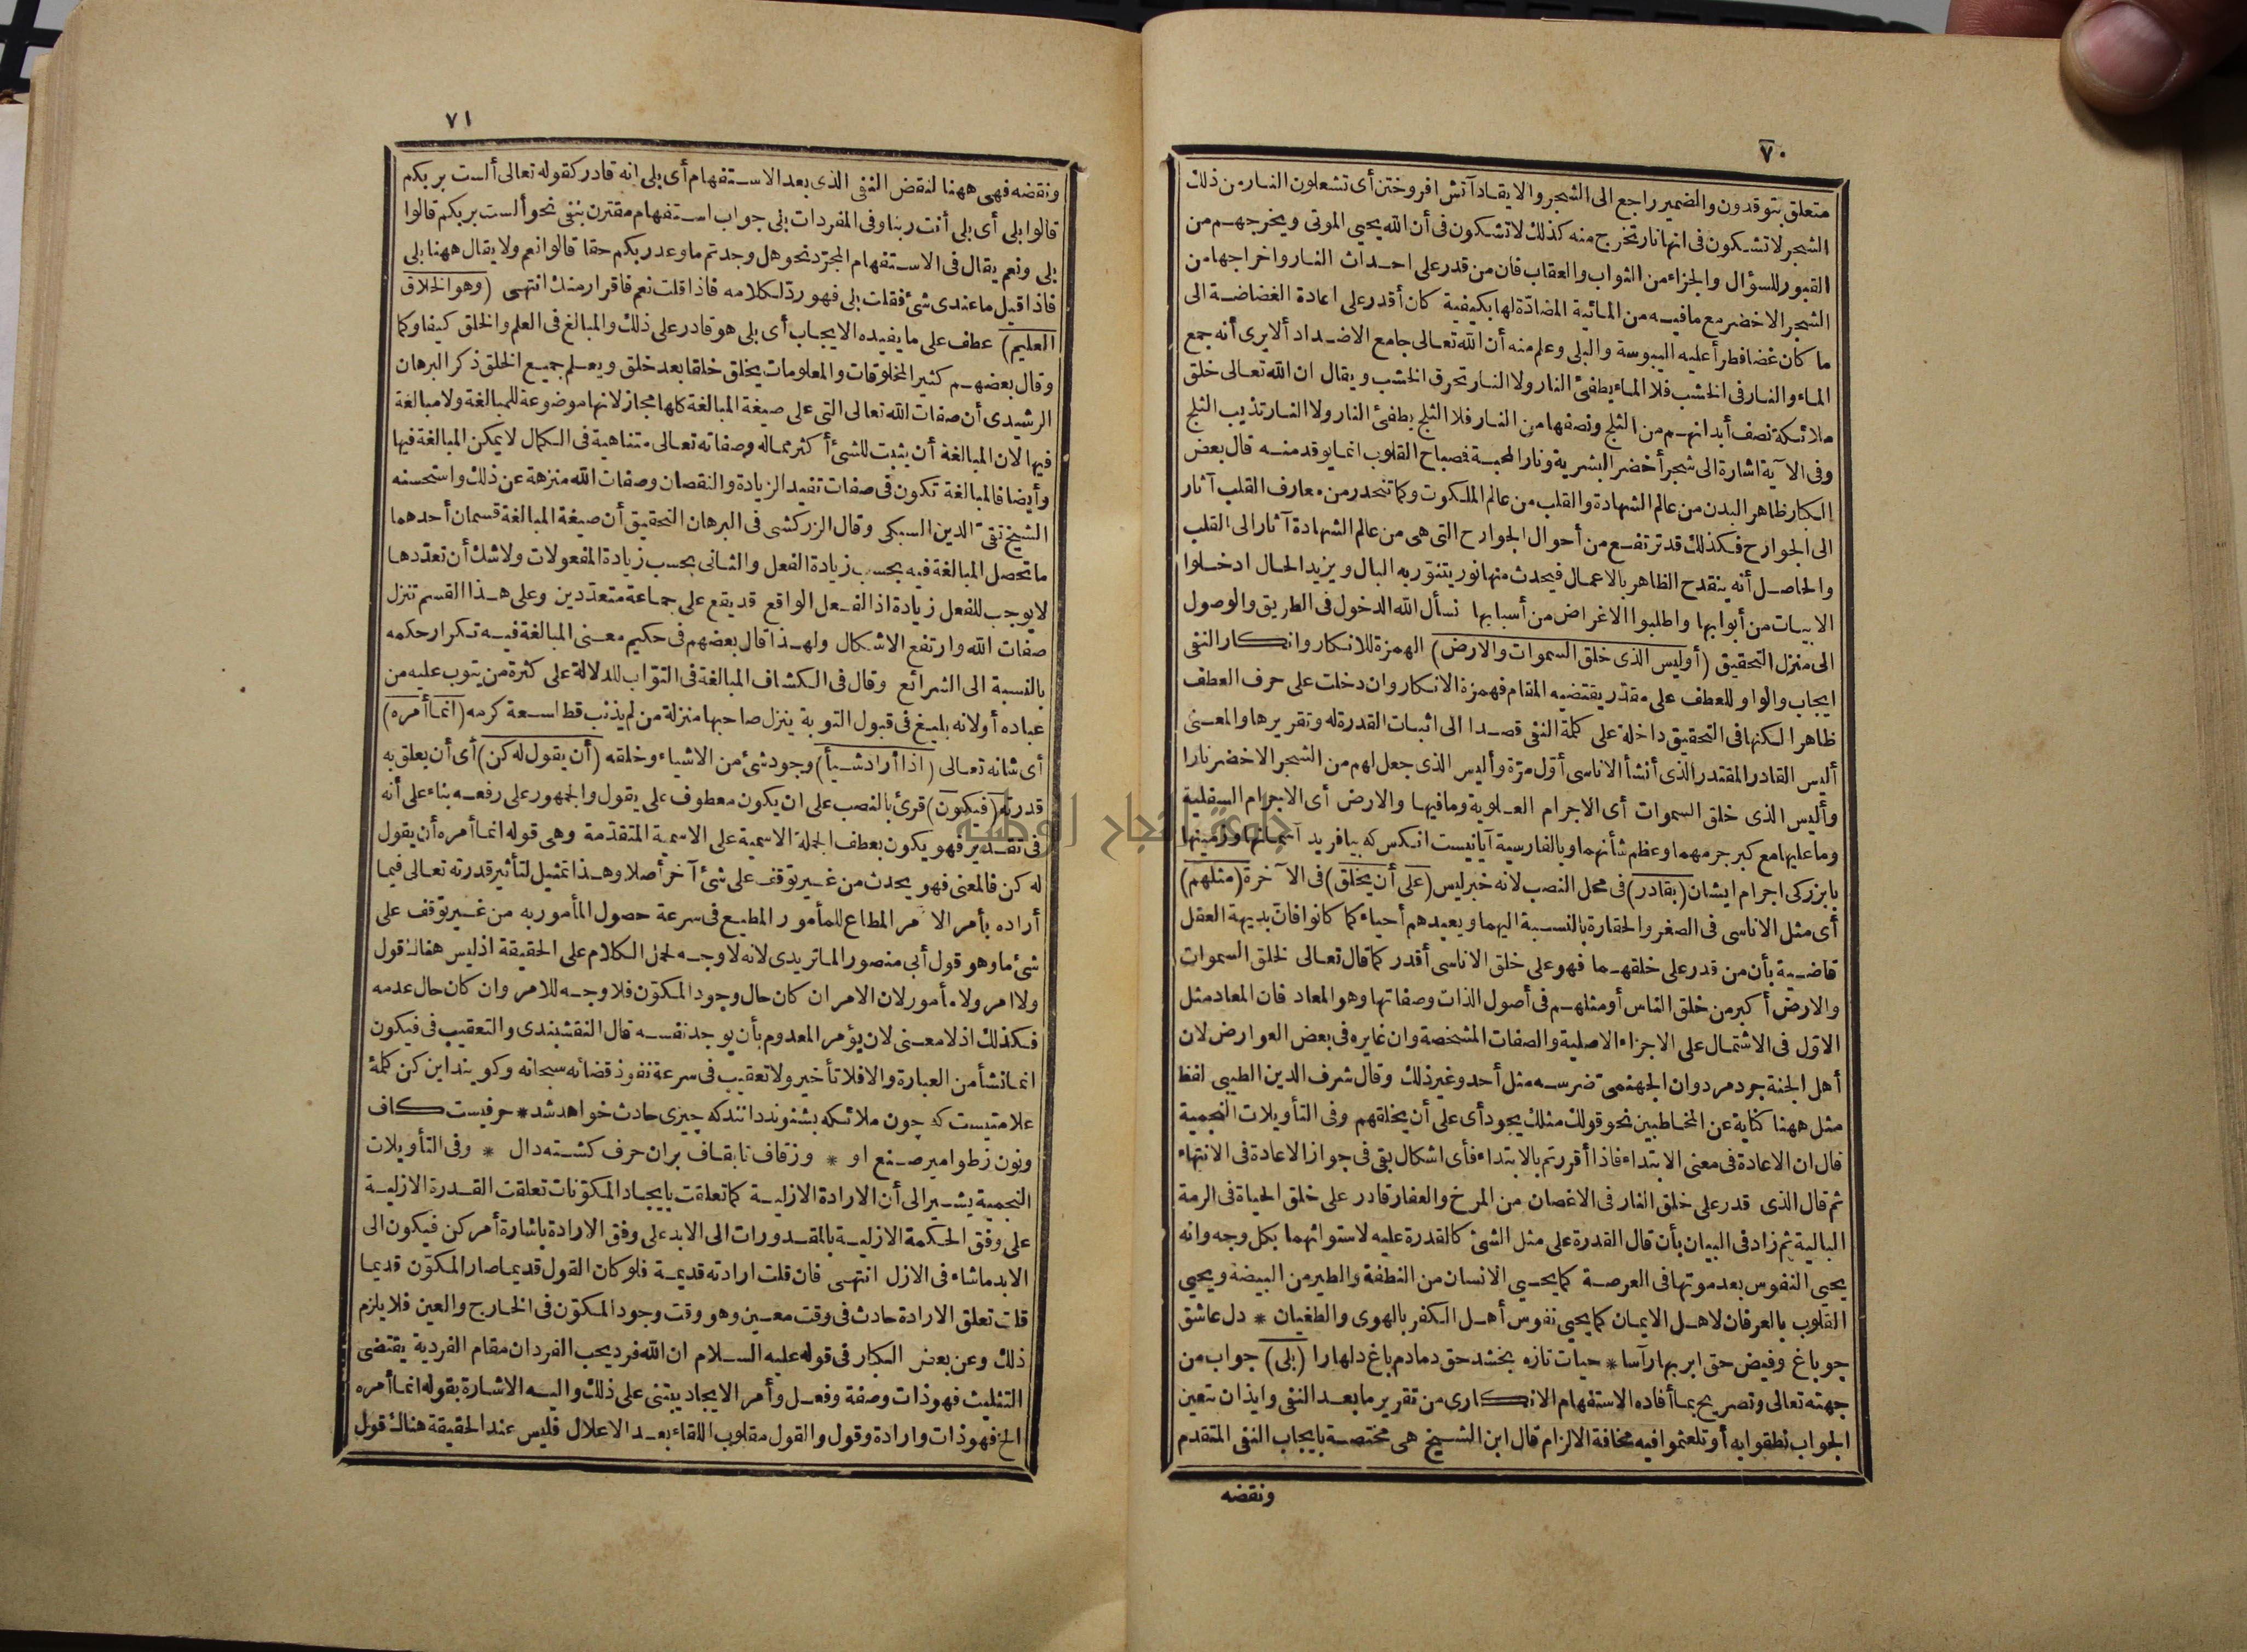 ٧٠
متعلق بتوقدون والضمير راجع الى الشجر والايقاد آتش افروختن أى تشعلون النار من ذلك
الشجر لا تشكون فى انها نار تخرج منه كذلك لا تشكون فى أن الله يحيى الموتى ويخرجهم من
القبور للسؤال والجزاء من الثواب والعقاب فان من قدر على احداث النار واخراجها من
الشجر الاخضر مع ما فيه من المائية المضادّة لها بكيفية كان أقدر على اعادة الغضاضة الى
ما كان غضا فطرأ عليه اليبوسة والبلى وعلم منه أن الله تعالى جامع الاضداد ألا يرى أنه جمع
الماء والنار فى الخشب فلا الماء يطفئ النار ولا النار تحرق الخشب ويقال ان الله تعالى خلق
ملائكة نصف أبدانهم من الثلج ونصفها من النار فلا الثلج يطفئ النار ولا النار تذيب الثلج
وفى الآية اشارة الى شجر أخضر البشرية ونار المحبة فصباح القلوب انما يوقد منه قال بعض
الكبار ظاهر البدن من عالم الشهادة والقلب من عالم الملكوت وكما تنحدر من معارف القلب آثار
الى الجوارح فكذلك قد ترتفع من أحوال الجوارح التى هى من عالم الشهادة آثار الى القلب
والحاصل أنه ينقدح الظاهر بالاعمال فيحدث منها نور يتنوّر به البال ويزيد الحال ادخلوا
الابيات من أبوابها واطلبوا الاغراض من أسبابها نسأل الله الدخول فى الطريق والوصول
الى منزل التحقيق (أوليس الذى خلق السموات والارض) الهمزة للانكار وانكار النفى
ايجاب والواو للعطف على مقدّر يقتضيه المقام فهمزة الانكار وان دخلت على حرف العطف
ظاهرا لكنها فى التحقيق داخلة على كلمة النفى قصدا الى اثبات القدرة له وتقريرها والمعنى
أليس القادر المقتدر الذى أنشأ الاناسى أوّل مرّة وأليس الذى جعل لهم من الشجر الاخضر نارا
وأليس الذى خلق السموات أى الاجرام العلوية وما فيها والارض أى الاجرام السفلية
وما عليها مع كبر جرمهما وعظم شأنهما وبالفارسية آيا نيست انكس كه بيافريد آسمانها وزمينها
بابزركى اجرام ايشان (بقادر) فى محل النصب لانه خبر ليس (على أن يخلق) فى الآخرة (مثلهم)
أى مثل الاناسى فى الصغر والحقارة بالنسبة اليهما ويعيدهم أحياء كما كانوا فان بديهة العقل
قاضية بأن من قدر على خلقهما فهو على خلق الاناسى أقدر كما قال تعالى لخلق السموات
والارض أكبر من خلق الناس أو مثلهم فى أصول الذات وصفاتها وهو المعاد فان المعاد مثل
الاوّل فى الاشتمال على الاجزاء الاصلية والصفات المشخصة وان غايره فى بعض العوارض لان
أهل الجنة جرد مرد وان الجهنمىّ ضرسه مثل أحد وغير ذلك وقال شرف الدين الطيبى لفظ
مثل ههنا كناية عن المخاطبين نحو قولك مثلك يجود أى على أن يخلقهم وفى التأويلات النجمية
قال ان الاعادة فى معنى الابتداء فاذا أقررتم بالابتداء فأى اشكال بقى فى جواز الاعادة فى الانتهاء
ثم قال الذى قدر على خلق النار فى الاغصان من المرخ والعفار قادر على خلق الحياة فى الرمة
البالية ثم زاد فى البيان بأن قال القدرة على مثل الشئ كالقدرة عليه لاستوائهما بكل وجه وانه
يحيى النفوس بعد موتها فى العرصة كما يحيى الانسان من النطفة والطير من البيضة ويحيى
القلوب بالعرفان لاهل الايمان كما يحيى نفوس أهل الكفر بالهوى والطغيان * دل عاشق
چو باغ وفيض حق ابر بهار آسا * حيات تازه بخشد حق دمادم باغ دلهارا (بلى) جواب من
جهته تعالى وتصريح بما أفاده الاستفهام الانكارى من تقرير ما بعد النفى وايذان بتعين
الجواب نطقوا به أو تلعثموا فيه مخافة الالزام قال ابن الشيخ هى مختصة بايجاب النفى المتقدم
ونقضه
٧١
ونقضه فهى ههنا لنقض النفى الذى بعد الاستفهام أى بلى انه قادر كقوله تعالى ألست بربكم
قالوا بلى أى بلى أنت ربنا وفى المفردات بلى جواب استفهام مقترن بنفى نحو ألست بربكم قالوا
بلى ونعم يقال فى الاستفهام المجرّد نحو هل وجدتم ما وعد ربكم حقا قالوا نعم ولا يقال ههنا بلى
فاذا قيل ما عندى شئ فقلت بلى فهو ردّ لكلامه فاذا قلت نعم فاقرار منك انتهى (وهو الخلاق
العليم) عطف على ما يفيده الايجاب أى بلى هو قادر على ذلك والمبالغ فى العلم والخلق كيفا وكما
وقال بعضهم كثير المخلوقات والمعلومات يخلق خلقا بعد خلق ويعلم جميع الخلق ذكر البرهان
الرشيدى أن صفات الله تعالى التى على صيغة المبالغة كلها مجاز لانها موضوعة للمبالغة ولا مبالغة
فيها لان المبالغة أن يثبت للشئ أكثر مما له وصفاته تعالى متناهية فى الكمال لا يمكن المبالغة فيها
وأيضا فالمبالغة تكون فى صفات تفيد الزيادة والنقصان وصفات الله منزهة عن ذلك واستحسنه
الشيخ تقىّ الدين السبكى وقال الزركشى فى البرهان التحقيق أن صيغة المبالغة قسمان أحدهما
ما تحصل المبالغة فيه بحسب زيادة الفعل والثانى بحسب زيادة المفعولات ولا شك أن تعدّدها
لا يوجب للفعل زيادة اذ الفعل الواقع قد يقع على جماعة متعدّدين وعلى هذا القسم تنزل
صفات الله وارتفع الاشكال ولهذا قال بعضهم فى حكيم معنى المبالغة فيه تكرار حكمه
بالنسبة الى الشرائع وقال فى الكشاف المبالغة فى التوّاب للدلالة على كثرة من يتوب عليه من
عباده أو لانه بليغ فى قبول التوبة ينزل صاحبها منزلة من لم يذنب قط لسعة كرمه (انما أمره)
أى شانه تعالى (اذا أراد شيأ) وجود شئ من الاشياء وخلقه (أن يقول له كن) أى أن يعلق به
قدرته (فيكون) قرئ بالنصب على ان يكون معطوف على يقول والجمهور على رفعه بناء على أنه
فى تقدير فهو يكون بعطف الجملة الاسمية على الاسمية المتقدّمة وهى قوله انما أمره أن يقول
له كن فالمعنى فهو يحدث من غير توقف على شئ آخر أصلا وهذا تمثيل لتأثير قدرته تعالى فيما
أراده بأمر الآمر المطاع للمأمور المطيع فى سرعة حصول المأمور به من غير توقف على
شئ ما وهو قول أبى منصور الماتريدى لانه لا وجه لحمل الكلام على الحقيقة اذ ليس هناك قول
ولا امر ولا مأمور لان الامر ان كان حال وجود المكوّن فلا وجه للامر وان كان حال عدمه
فكذلك اذ لا معنى لان يؤمر المعدوم بأن يوجد نفسه قال النقشبندى والتعقيب فى فيكون
انما نشأ من العبارة والا فلا تأخير ولا تعقيب فى سرعة نفوذ قضائه سبحانه وكويند اين كن كلمۀ
علامتيست كه چون ملائكه بشنوند دانند كه چيزى حادث خواهد شد * حرفيست كاف
ونون ز طوامير صنع او * وز قاف تا بقاف بران حرف كشته دال * وفى التأويلات
النجمية يشير الى أن الارادة الازلية كما تعلقت بايجاد المكوّنات تعلقت القدرة الازلية
على وفق الحكمة الازلية بالمقدورات الى الابد على وفق الارادة باشارة أمر كن فيكون الى
الابد ما شاء فى الازل انتهى فان قلت ارادته قديمة فلو كان القول قديما صار المكوّن قديما
قلت تعلق الارادة حادث فى وقت معين وهو وقت وجود المكوّن فى الخارج والعين فلا يلزم
ذلك وعن بعض الكبار فى قوله عليه السلام ان الله فرد يحب الفرد ان مقام الفردية يقتضى
التثليث فهو ذات وصفة وفعل وأمر الايجاد يبتنى على ذلك واليه الاشارة بقوله انما أمره
الخ فهو ذات وارادة وقول والقول مقلوب اللقاء بعد الاعلال فليس عند الحقيقة هناك قول